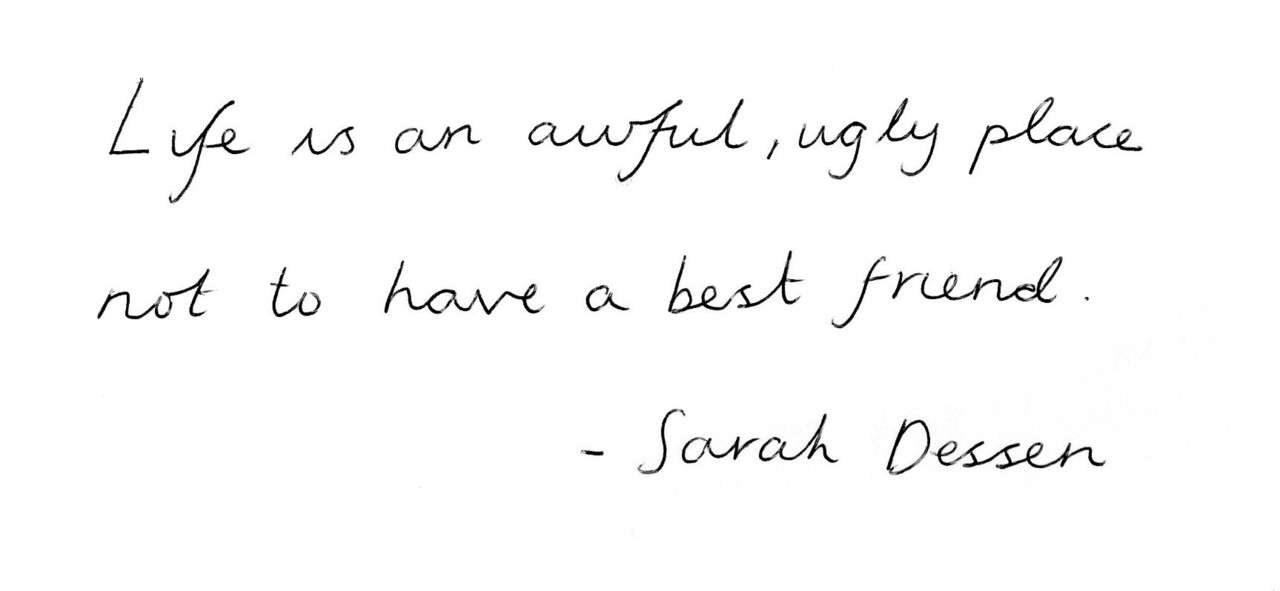 Life is an awful, ugly place
not to have a best friend.
- Sarah Dessen